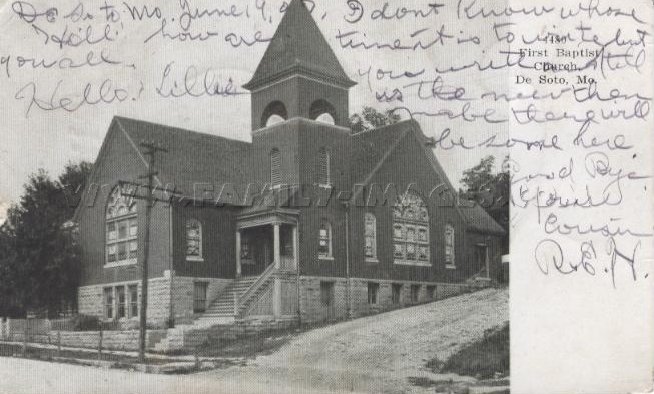 De Soto, Mo, June 19, I dont Know whose
Hello how are
timent is to write but
you all.
you write & tell
Hello. Lillie
us the new then
maybe there will
be some here
Good Bye
Your
Cousin
R. E. N.
First Baptist
Church,
De Soto, Mo.
WWW.FAMILY-IMAGES.COM